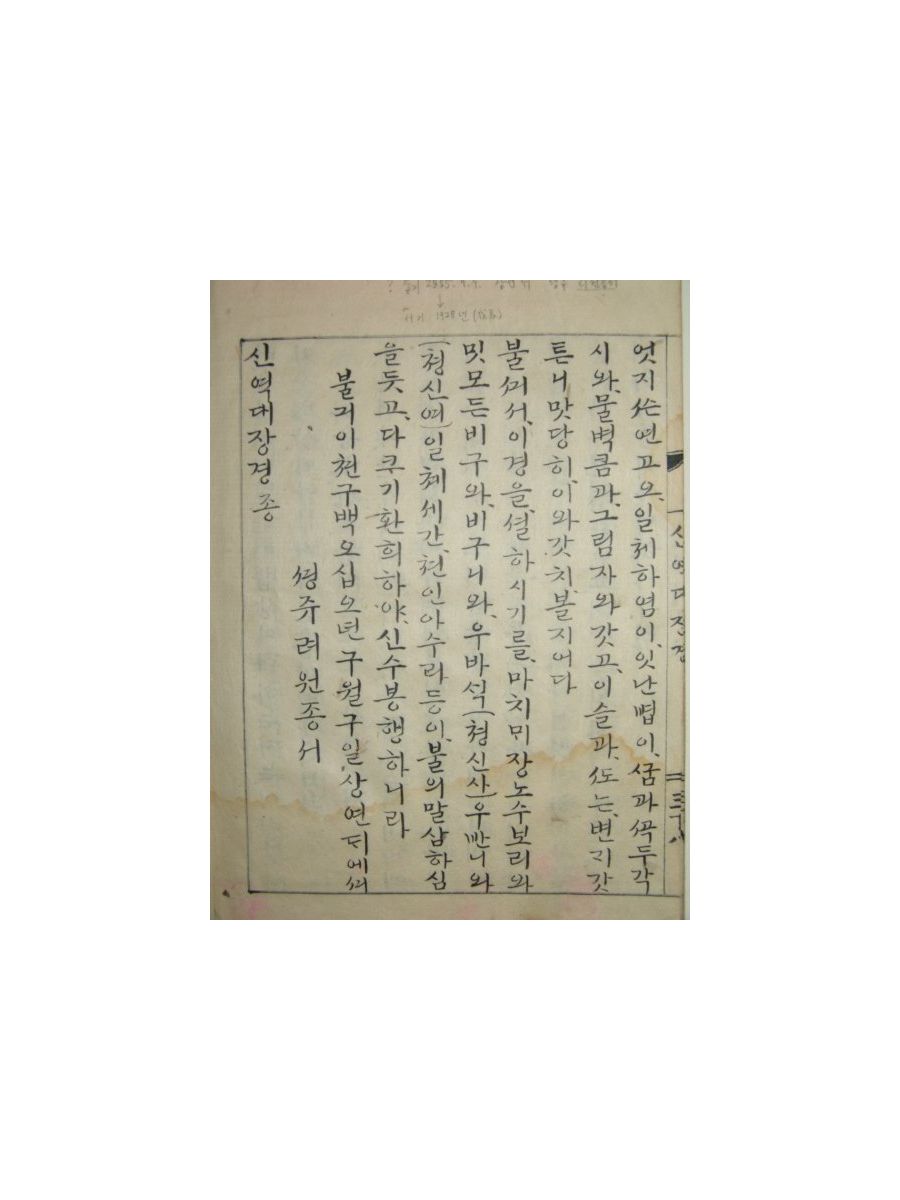 신역대장경
엇지 연고오、일체하염이、잇난법이、ᄭᅮᆷ과ᄭᅩᆨ두각
시와、물벅큼과、그림자와갓고、이슬과、ᄯᅩ는、번ᄀᆡ갓
튼니맛당히、이와갓치、볼지어다
불ᄭᅴ서、이경을、셜하시기를、마치ᄆᆡ장노수보리와
밋모든비구와、비구니와、우바 (쳥신사)우 니와
(쳥신여)일체세간、천인아수라등이、불의말삼하심
을듯고、다크기환희하야、신수봉행하니라
불긔이쳔구백오십오년구월구일、상연ᄃᆡ에
려원종서
신역대장경종
↓
서기 1928년